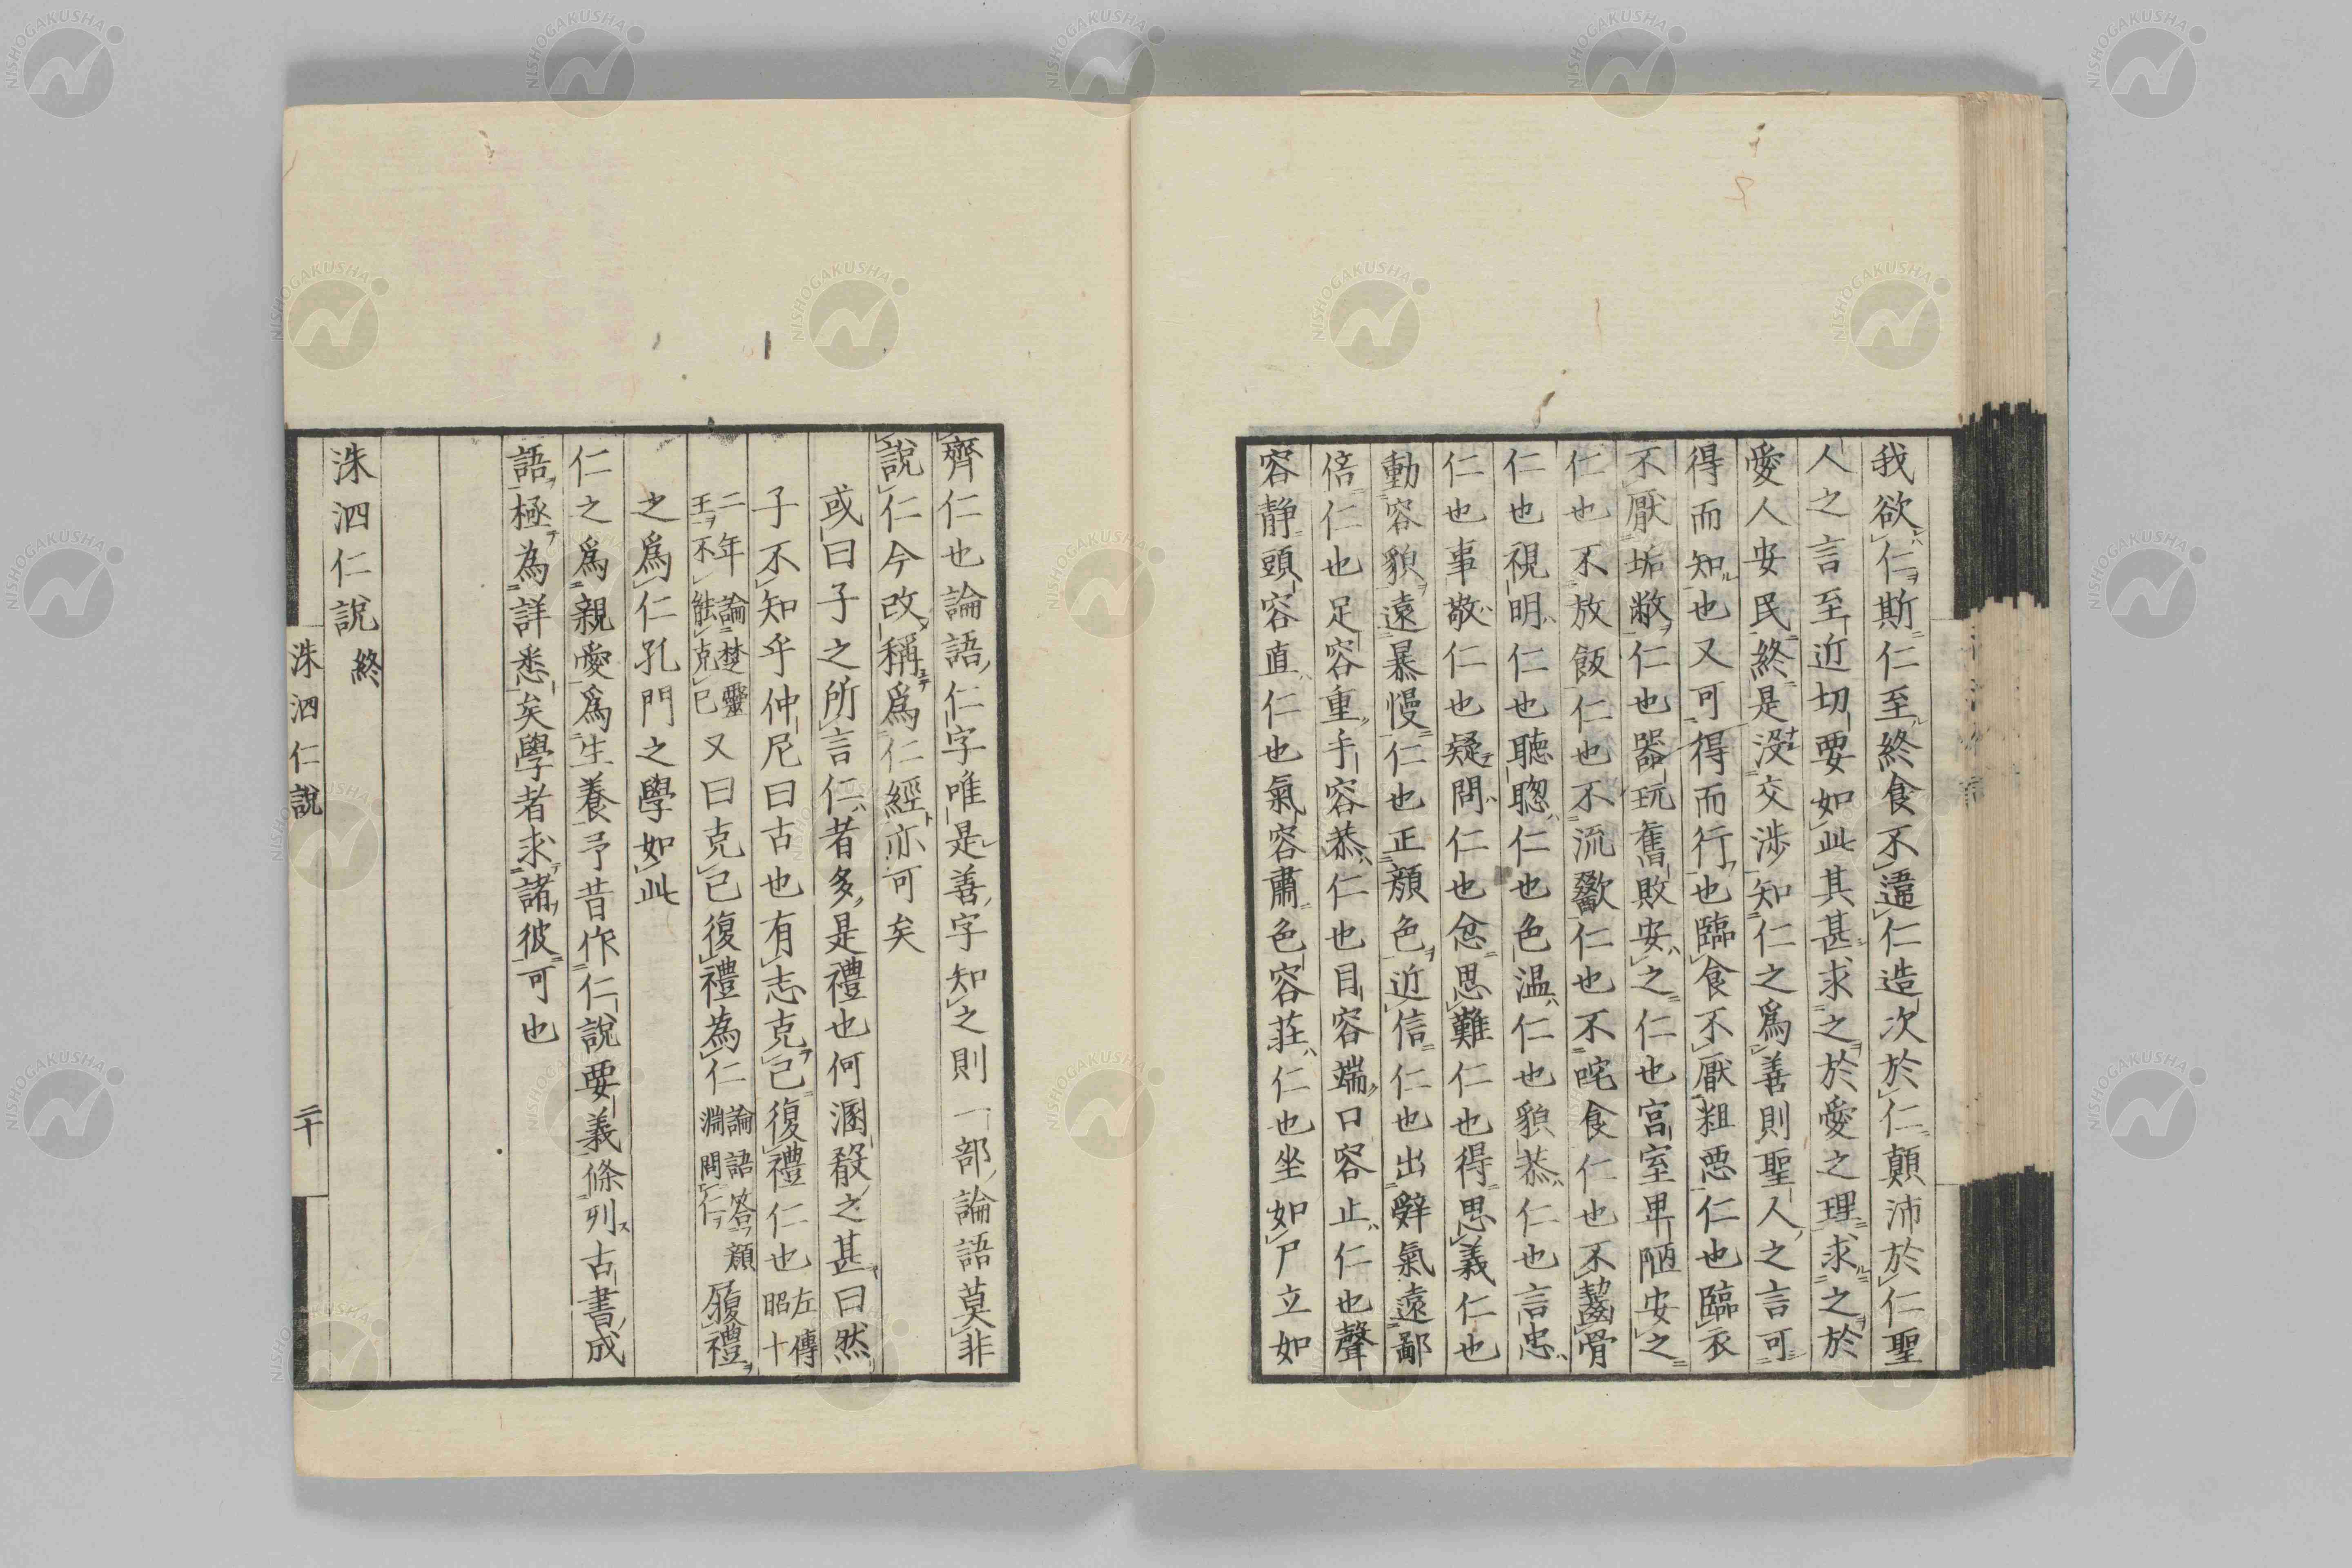 我欲仁斯仁至終食不違仁造次於仁顛沛於仁聖
人之言至近切要如此其甚求之於愛之理求之於
愛人安民終是沒交渉知仁之爲善則聖人之言可
得而知也又可得而行也臨食不厭粗惡仁也臨衣
不厭垢敝仁也器玩舊敗安之仁也宮室卑陋安之
仁也不放飯仁也不流歠仁也不咤食仁也不齧骨
仁也視明仁也聽聰仁也色温仁也貌恭仁也言忠
仁也事敬仁也疑問仁也忿思難仁也得思義仁也
動容貌遠暴慢仁也正顏色近信仁也出辭氣遠鄙
倍仁也足容重手容恭仁也目容端口容止仁也聲
容静頭容直仁也氣容肅色容莊仁也坐如尸立如
齊仁也論語仁字唯是善字知之則一部論語莫非
說仁今改稱爲仁經亦可矣
或曰子之所言仁者多是禮也何溷殽之甚曰然
子不知乎仲尼曰古也有志克己復禮仁也左傳昭十
二年論楚靈王不能克己又曰克己復禮為仁論語答顏淵問仁履禮
之爲仁孔門之學如此
仁之爲親愛爲生養予昔作仁說要義條列古書成
語極為詳悉矣學者求諸彼可也
洙泗仁說終
洙泗仁說
二十
NISHOGAKUSHA